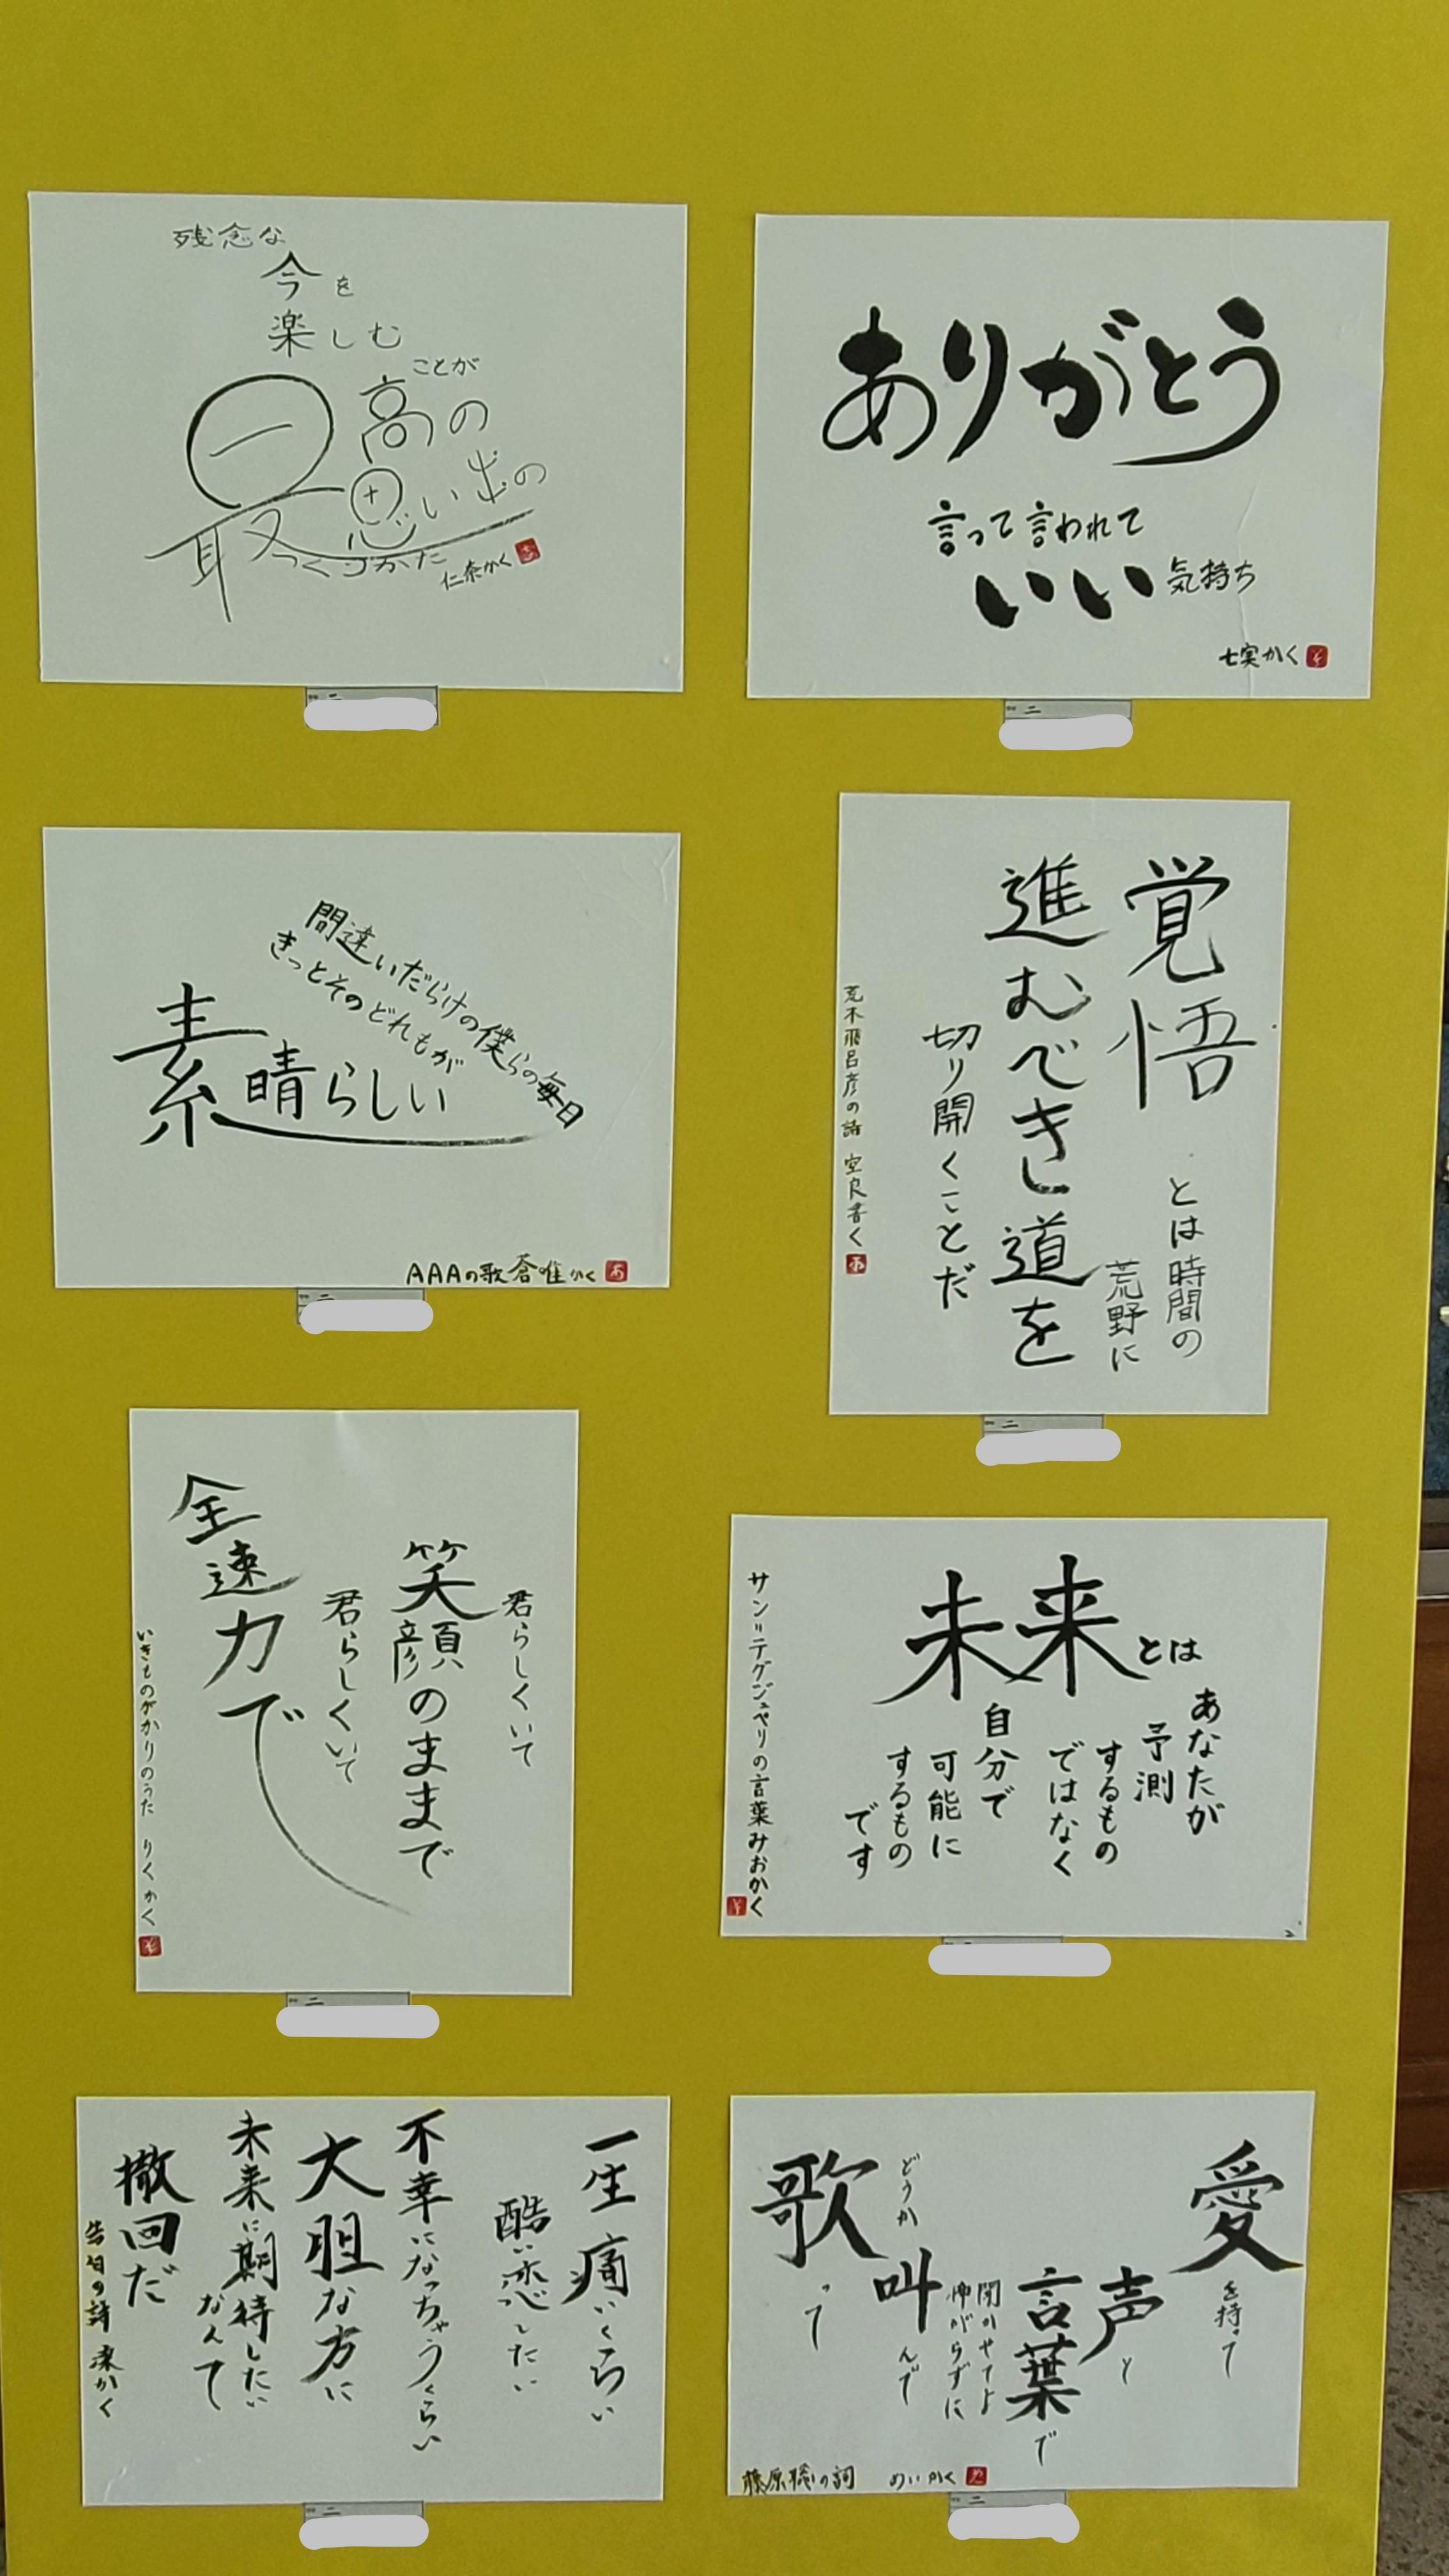 残念な
今を
楽しむ
ことが
最高の
思い出の
つくりかた
仁奈かく
ありがとう
言って言われて
いい気持ち
七実かく
二
間違いだらけの僕らの毎日
きっとそのどれもが
素晴らしい
AAAの歌 蒼唯かく
覚悟とは時間の
荒野に
進むべき道を
切り開くことだ
荒木飛呂彦の詩 空良書く
二
君らしくいて
笑顔のままで
君らしくいて
全速力で
いきものがかりのうた りくかく
二
未来とは
あなたが
予測
するもの
ではなく
自分で
可能に
するもの
です
サン=テグジュペリの言葉みおかく
一生痛いくらい
酷い恋したい
不幸になっちゃうくらい
大胆な方に
未来に期待したい
なんて
撤回だ
の詩 凍かく
二
愛を持って
声と
言葉で
聞かせてよ
怖がらずに
叫んで
どうか
歌って
藤原聡の詞 めいかく
二